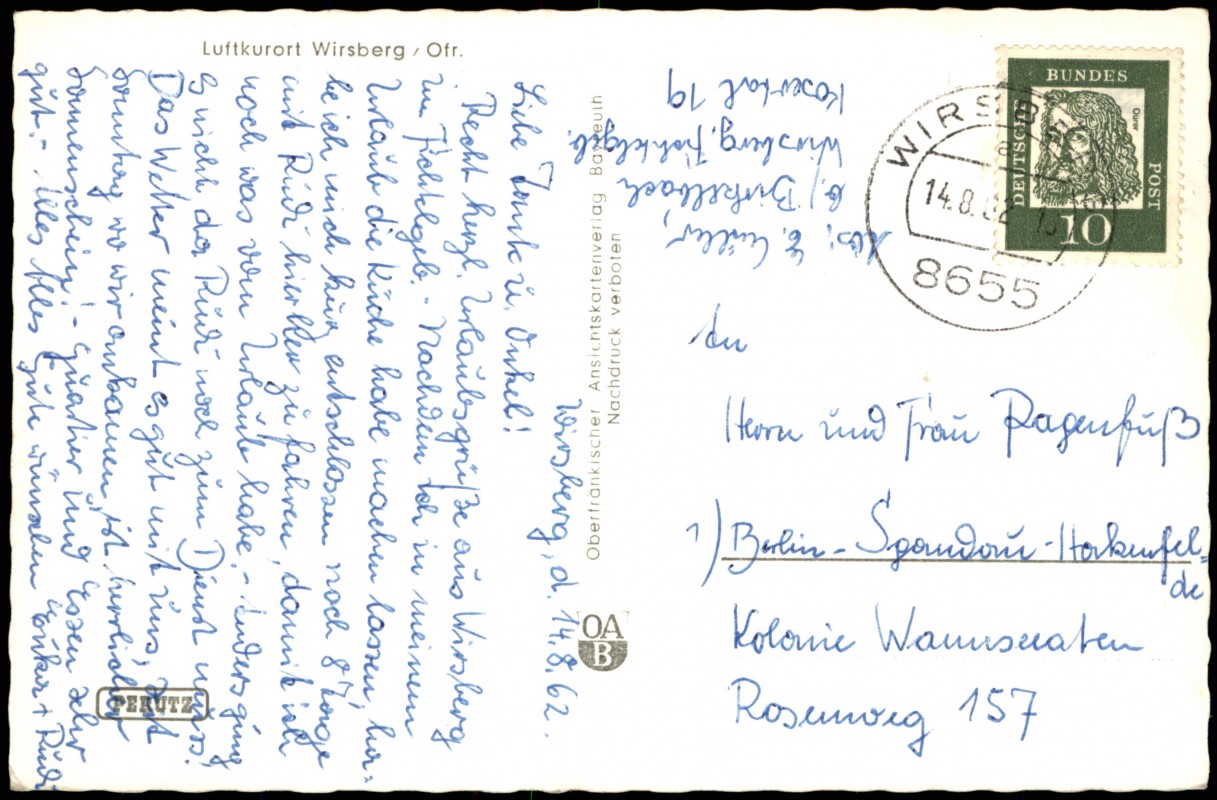 Luftkurort Wirsberg / Ofr.
Wirsberg, d. 14.8.62.
Liebe Tante u. Onkel!
Recht herzl. Urlaubsgrüße aus Wirsberg
im Fichtelgeb. - Nachdem ich in meinem
Urlaub die Küche habe machen lassen, ha-
be ich mich kurz entschlossen noch 8 Tage
mit Rudi hierher zu fahren, damit ich
noch was vom Urlaub habe. - Anders ging
es nicht da Rudi noch zum Dienst muss!
Das Wetter meint es gut mit uns, seit
Sonntag wo wir ankamen, ist herrlicher
Sonnenschein! - Quatier und Essen sehr
gut. - Alles Alles Gute wünschen + Rudi
PERUTZ
Oberfränkischer Ansichtskartenverlag Bayreuth
Nachdruck verboten
OA
B
Abs. E.
b/ Birkelbach
Wirsberg, Fichtelgeb.
Kosertal 19
DEUTSCHE
BUNDES
POST
Dürer
10
WIRSB
14.8.62
8655
An
Herrn und Frau Ragenfuß
1) Berlin - Spandau - Hakenfel=
de
Kolonie Wannseeaten
Rosenweg 157